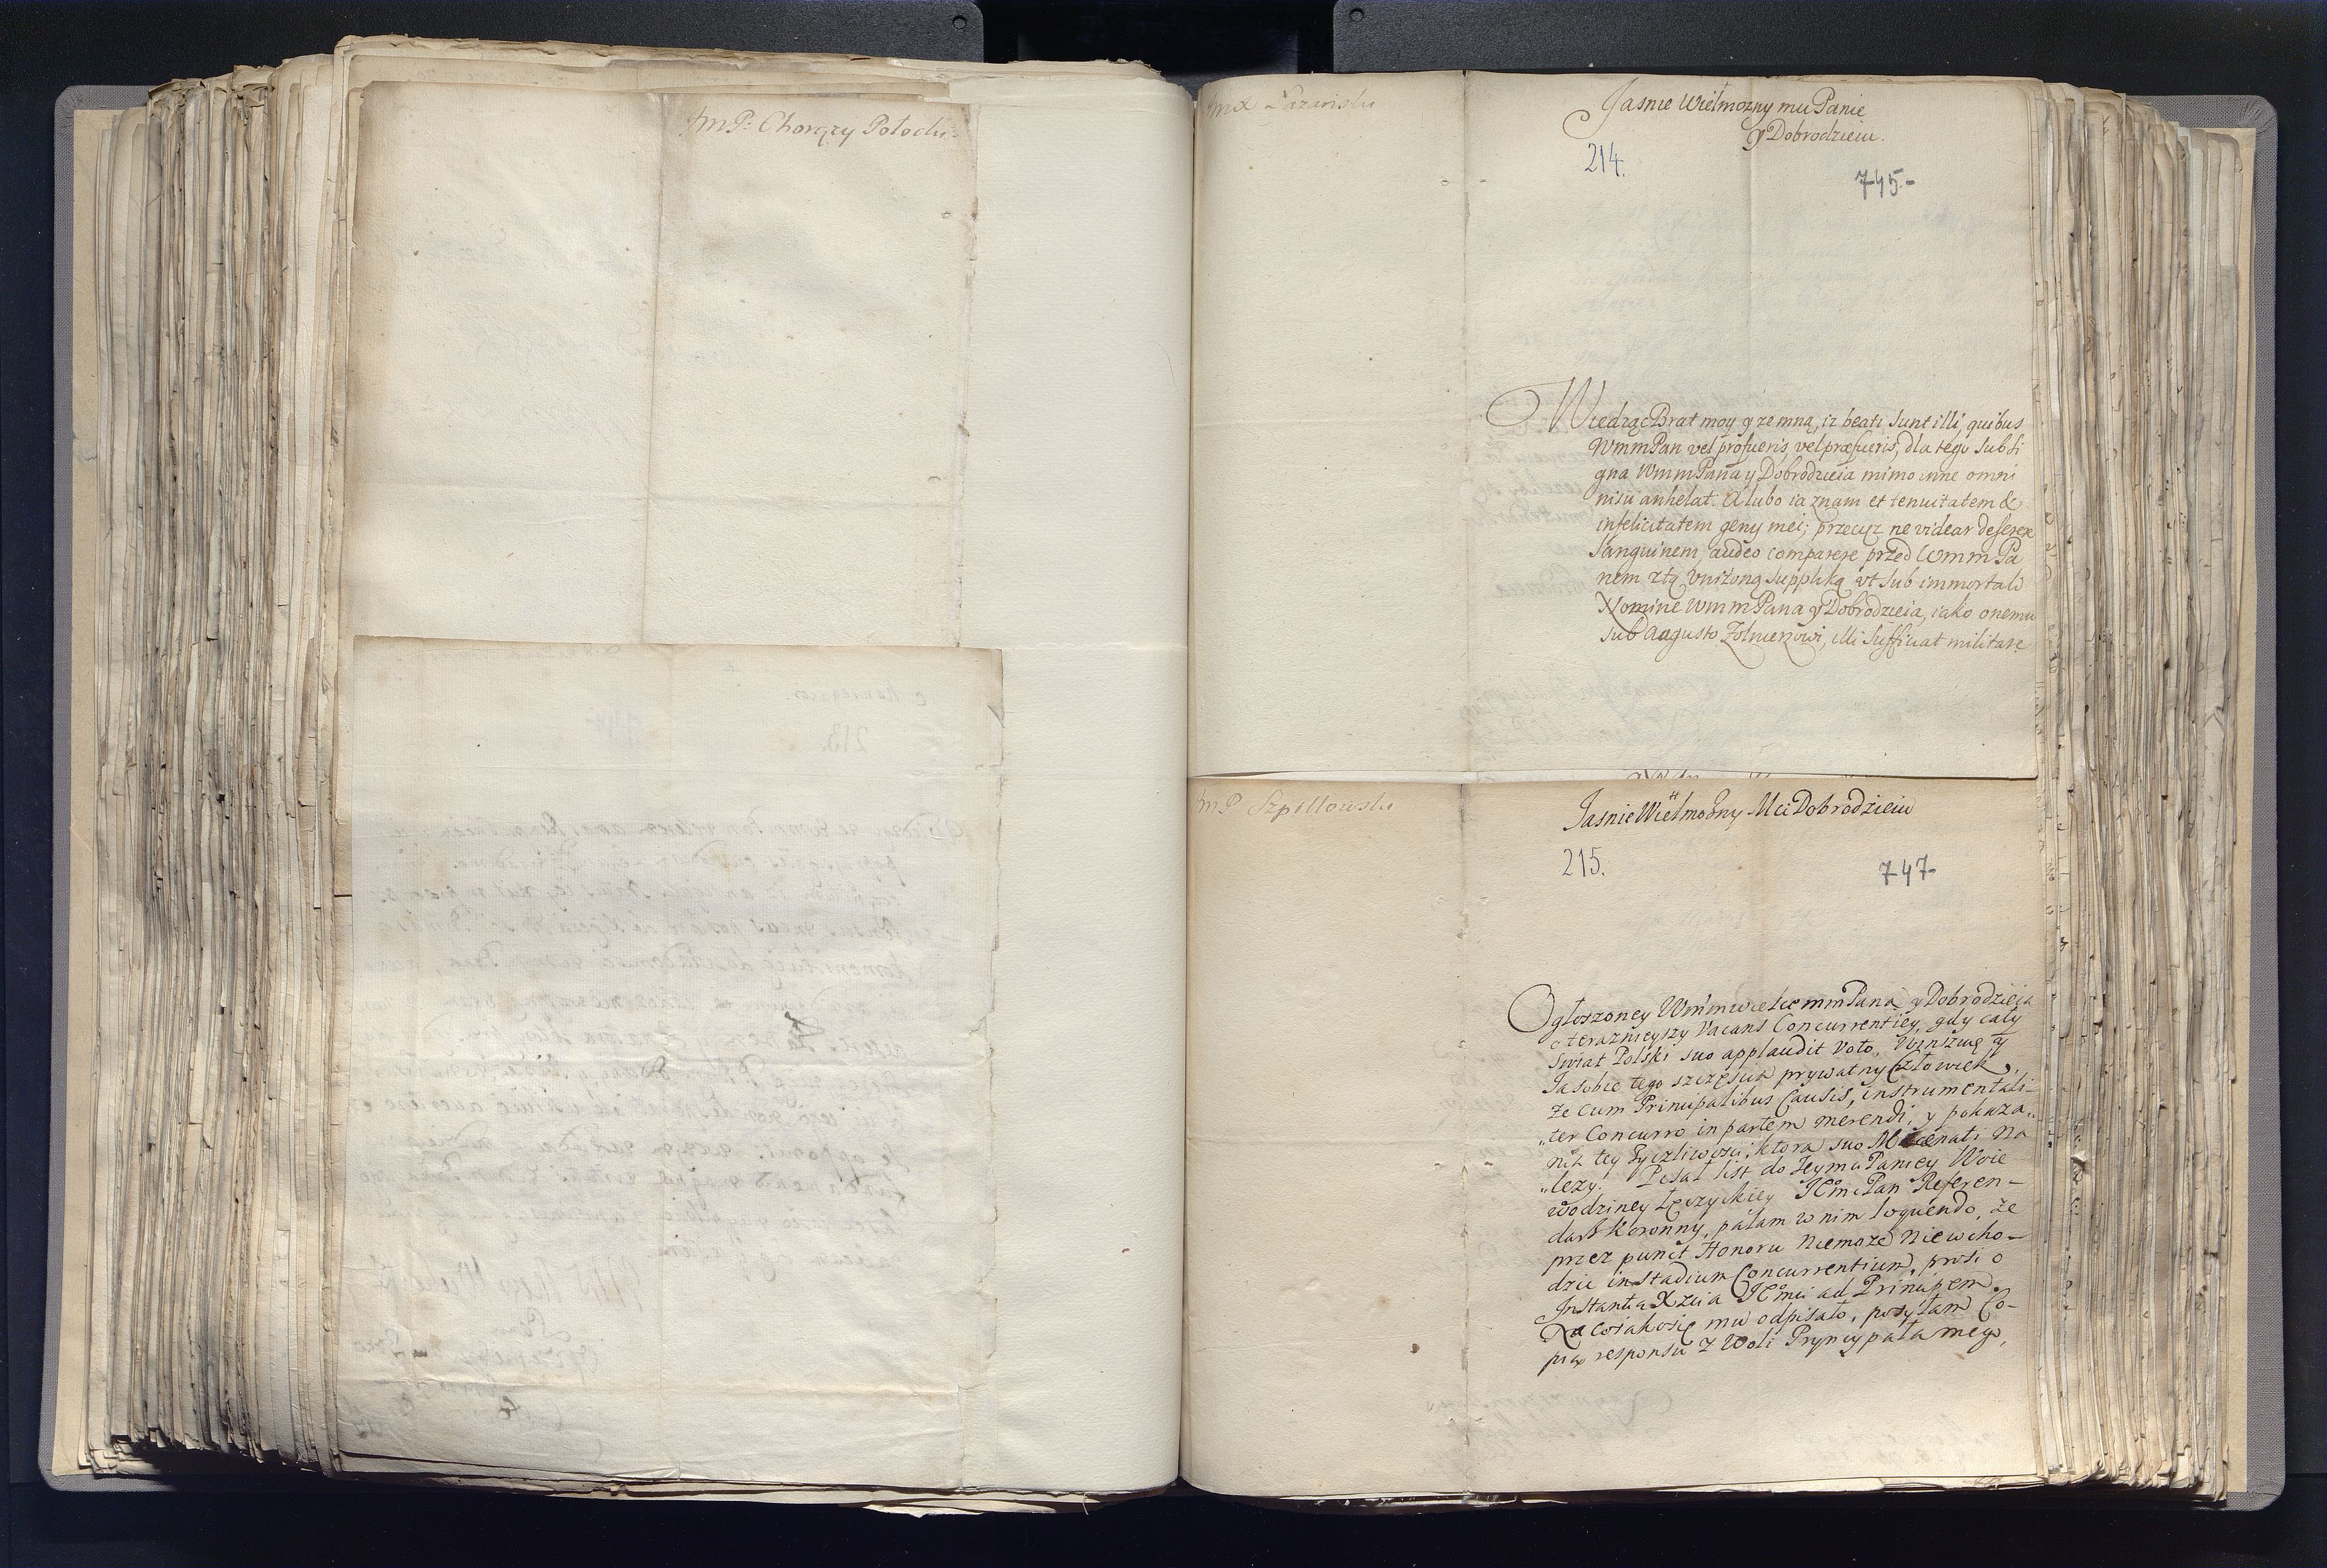 JmP: Chorązy Połocki
Jmx Łazanski
Jasnie Wielmozny mci Panie
y Dobrodzieiu.
214.
745.-
Wiedząc Brat moy y ze mną, iz beati sunt illi, quibus
WmmPan vel profueris, vel præfueris, dla tego sub si
gna WmmPana y Dobrodzieia mimo inne omni
nisu anhelat. A lubo ia znam et tenuitatem &
infelicitatem genij mei; przeciez ne videar deserere
sanguinem, audeo comparere przed WmmPa
nem z tą unizoną suppliką, vt sub immortali
Nomine WmmPana y Dobrodzieia, iako onemu
sub Augusto Zołnierzowi, illi sufficiat militare
JmP Szpillowski
Jasnie Wielmozny Mci Dobrodzieiu
215.
747-
Ogłoszoney Wmmwielce mmPana y Dobrodzieia
o teraznieyszy Vacans Concurrentiey, gdy cały
Swiat Polski suo applaudit Voto, Winszuię y
Ja sobie tego szczęscia prywatny Człowiek,
ze cum Principalibus Causis, instrumentali-
„ter Concurro in partem merendi, y pokaza„
nia tey Zyczliwosci, ktora suo Mecenati na
„lezy. Pisał list do Jeymci Paniey Woie
wodziney Łęczyckiey JEmci Pan Referen-
darz Koronny, palam w nim loquendo, że
przez punct Honoru niemoze niewcho-
dzic in stadium Concurrentium, prosi o
Instantia Xzcia JEmci ad Principem.
Na co iakosię mu odpisało, posyłam Co-
pią responsu z Woli Pryncypała mego,